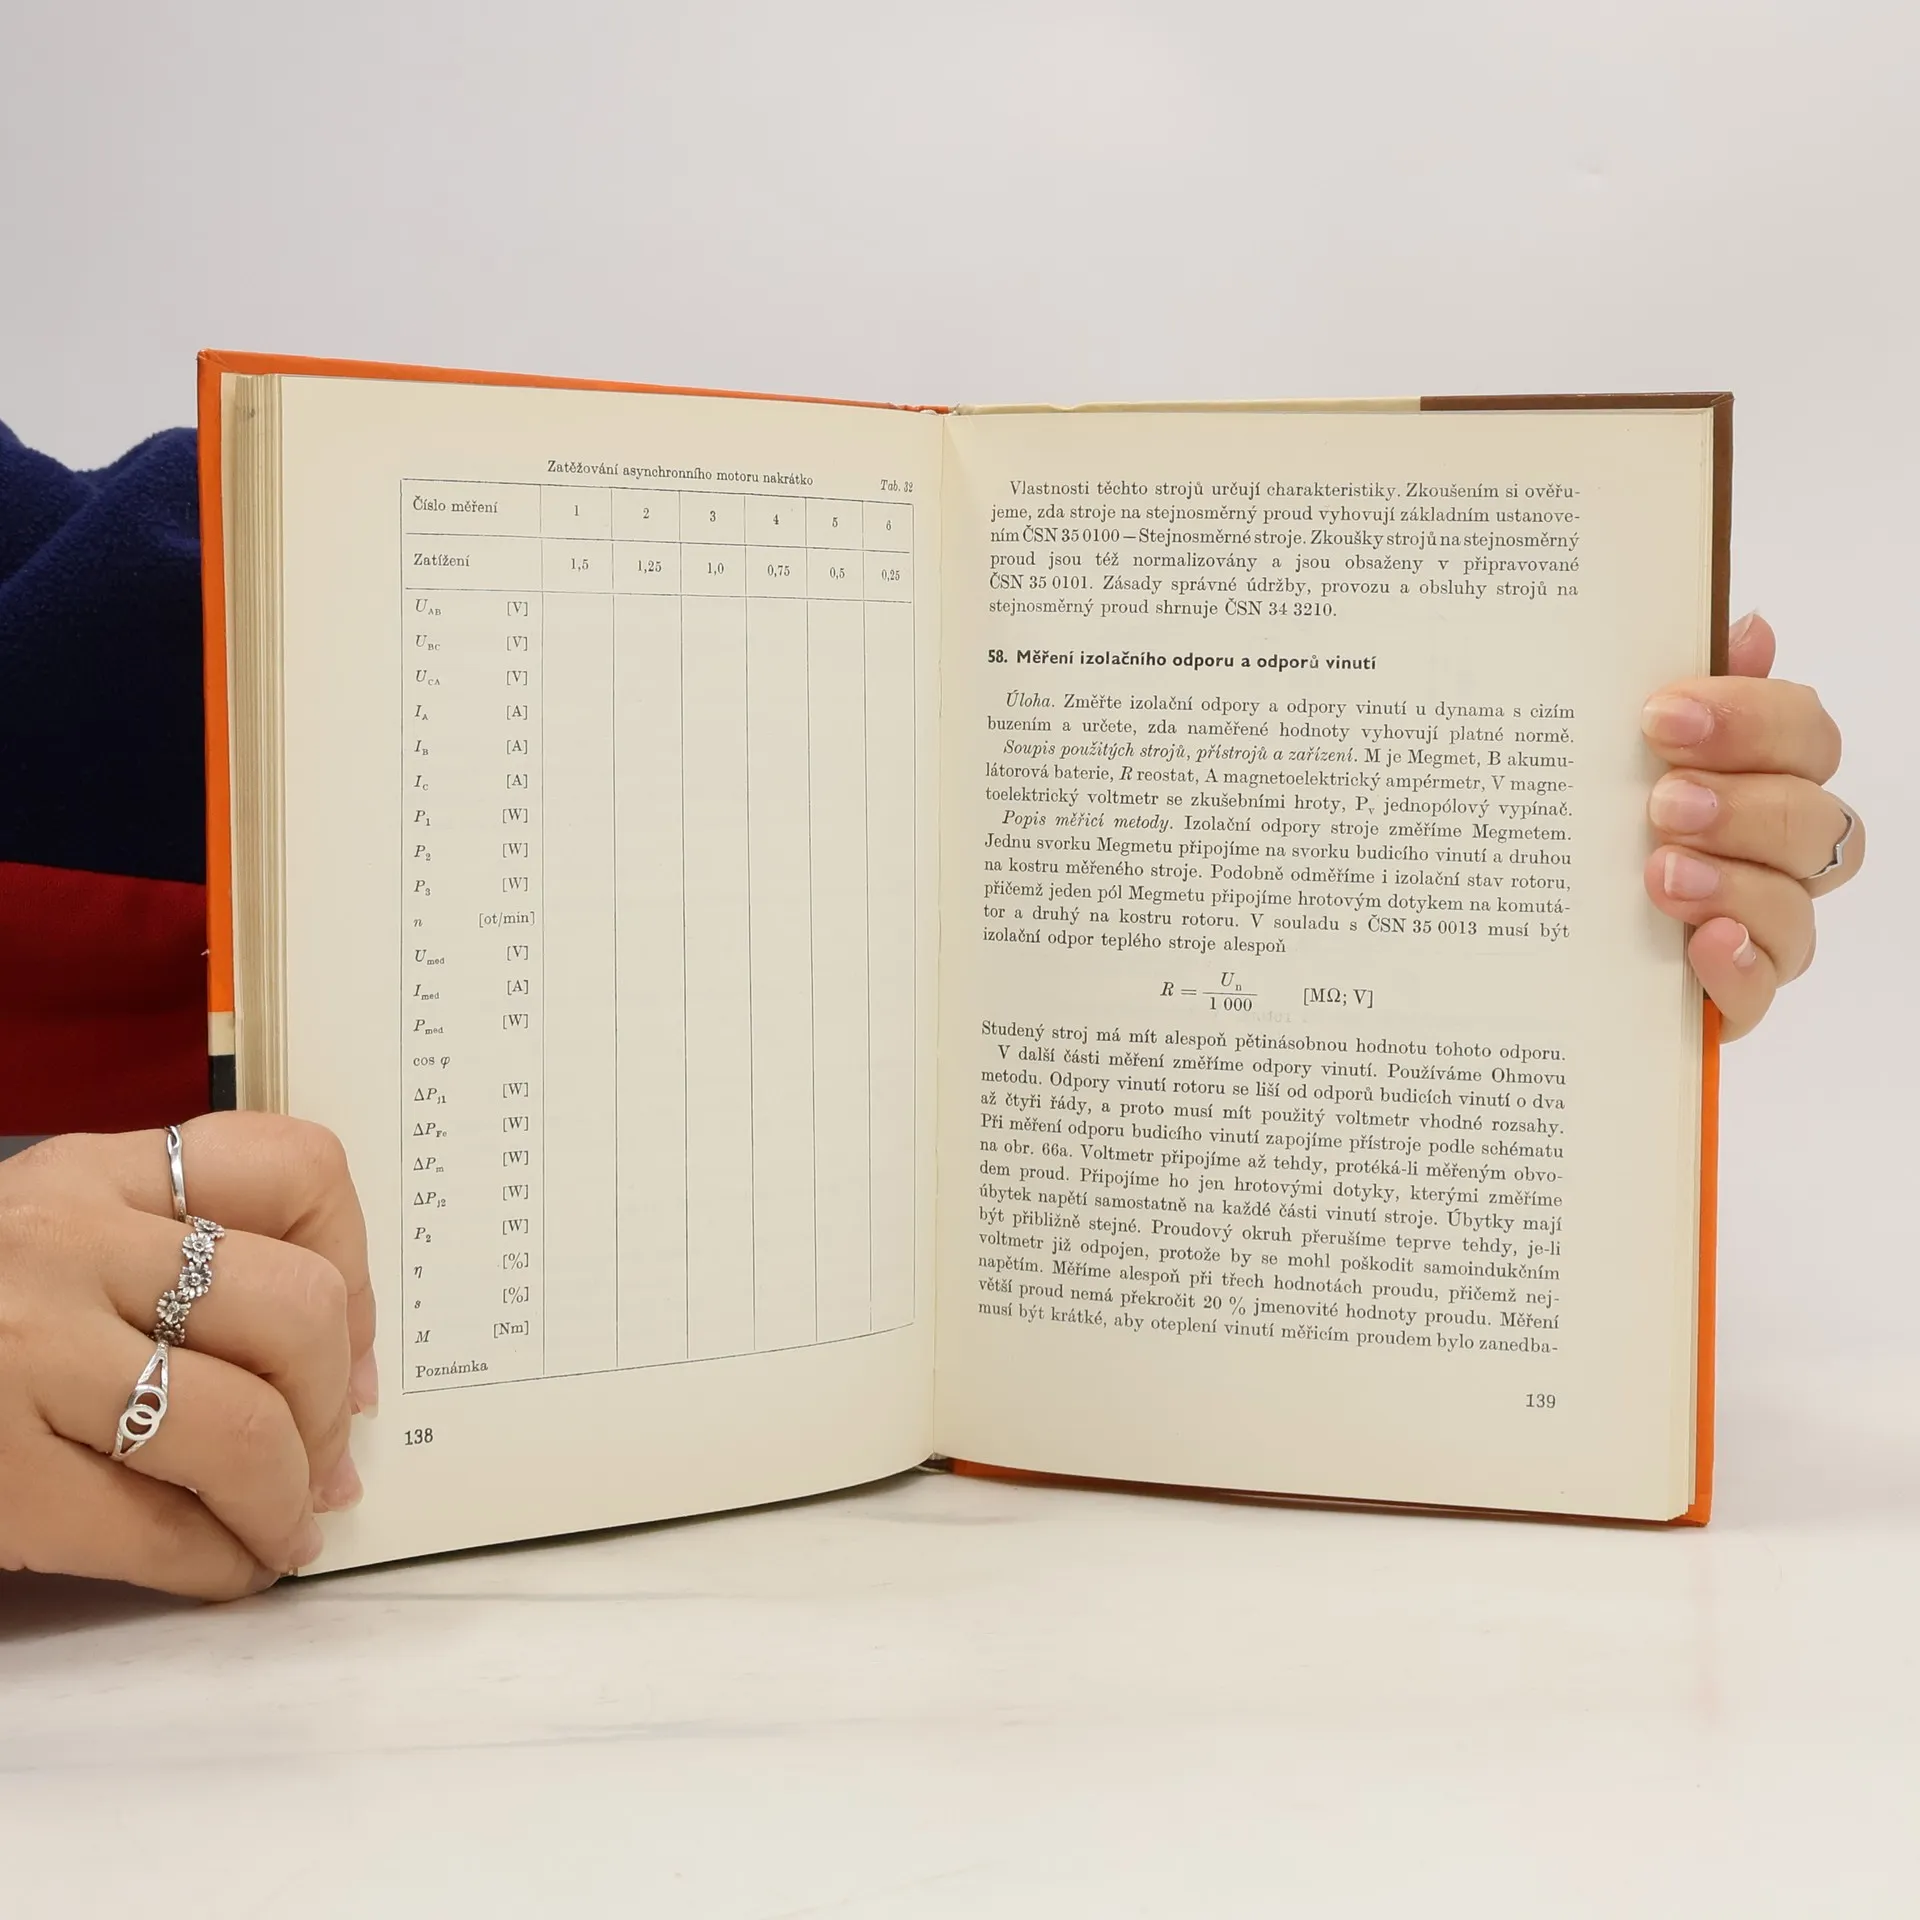 Zatěžování asynchronního motoru nakrátko
Tab. 32
Číslo měření 1 2 3 4 5 6
Zatížení 1,5 1,25 1,0 0,75 0,5 0,25
U_AB [V]
U_BC [V]
U_CA [V]
I_A [A]
I_B [A]
I_C [A]
P_1 [W]
P_2 [W]
P_3 [W]
n [ot/min]
U_med [V]
I_med [A]
P_med [W]
cos φ
ΔP_j1 [W]
ΔP_Fe [W]
ΔP_m [W]
ΔP_j2 [W]
P_2 [W]
η [%]
s [%]
M [Nm]
Poznámka
138
Vlastnosti těchto strojů určují charakteristiky. Zkoušením si ověřu-
jeme, zda stroje na stejnosměrný proud vyhovují základním ustanove-
ním ČSN 35 0100 – Stejnosměrné stroje. Zkoušky strojů na stejnosměrný
proud jsou též normalizovány a jsou obsaženy v připravované
ČSN 35 0101. Zásady správné údržby, provozu a obsluhy strojů na
stejnosměrný proud shrnuje ČSN 34 3210.
58. Měření izolačního odporu a odporů vinutí
Úloha. Změřte izolační odpory a odpory vinutí u dynama s cizím
buzením a určete, zda naměřené hodnoty vyhovují platné normě.
Soupis použitých strojů, přístrojů a zařízení. M je Megmet, B akumu-
látorová baterie, R reostat, A magnetoelektrický ampérmetr, V magne-
toelektrický voltmetr se zkušebními hroty, P_v jednopólový vypínač.
Popis měřicí metody. Izolační odpory stroje změříme Megmetem.
Jednu svorku Megmetu připojíme na svorku budicího vinutí a druhou
na kostru měřeného stroje. Podobně odměříme i izolační stav rotoru,
přičemž jeden pól Megmetu připojíme hrotovým dotykem na komutá-
tor a druhý na kostru rotoru. V souladu s ČSN 35 0013 musí být
izolační odpor teplého stroje alespoň
R = U_n / 1 000 [MΩ; V]
Studený stroj má mít alespoň pětinásobnou hodnotu tohoto odporu.
V další části měření změříme odpory vinutí. Používáme Ohmovu
metodu. Odpory vinutí rotoru se liší od odporů budicích vinutí o dva
až čtyři řády, a proto musí mít použitý voltmetr vhodné rozsahy.
Při měření odporu budicího vinutí zapojíme přístroje podle schématu
na obr. 66a. Voltmetr připojíme až tehdy, protéká-li měřeným obvo-
dem proud. Připojíme ho jen hrotovými dotyky, kterými změříme
úbytek napětí samostatně na každé části vinutí stroje. Úbytky mají
být přibližně stejné. Proudový okruh přerušíme teprve tehdy, je-li
voltmetr již odpojen, protože by se mohl poškodit samoindukčním
napětím. Měříme alespoň při třech hodnotách proudu, přičemž nej-
větší proud nemá překročit 20 % jmenovité hodnoty proudu. Měření
musí být krátké, aby oteplení vinutí měřicím proudem bylo zanedba-
139